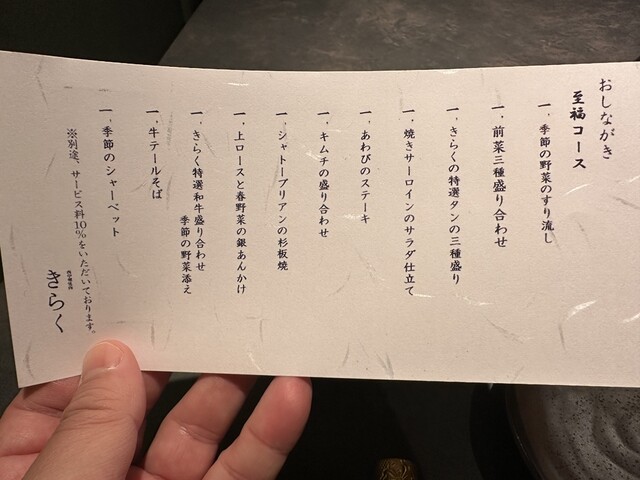 おしながき
至福コース
一、季節の野菜のすり流し
一、前菜三種盛り合わせ
一、きらくの特選タンの三種盛り
一、焼きサーロインのサラダ仕立て
一、あわびのステーキ
一、キムチの盛り合わせ
一、シャトーブリアンの杉板焼
一、上ロースと春野菜の銀あんかけ
一、きらく特選和牛盛り合わせ
季節の野菜添え
一、牛テールそば
一、季節のシャーベット
※別途、サービス料10%をいただいております。
きらく